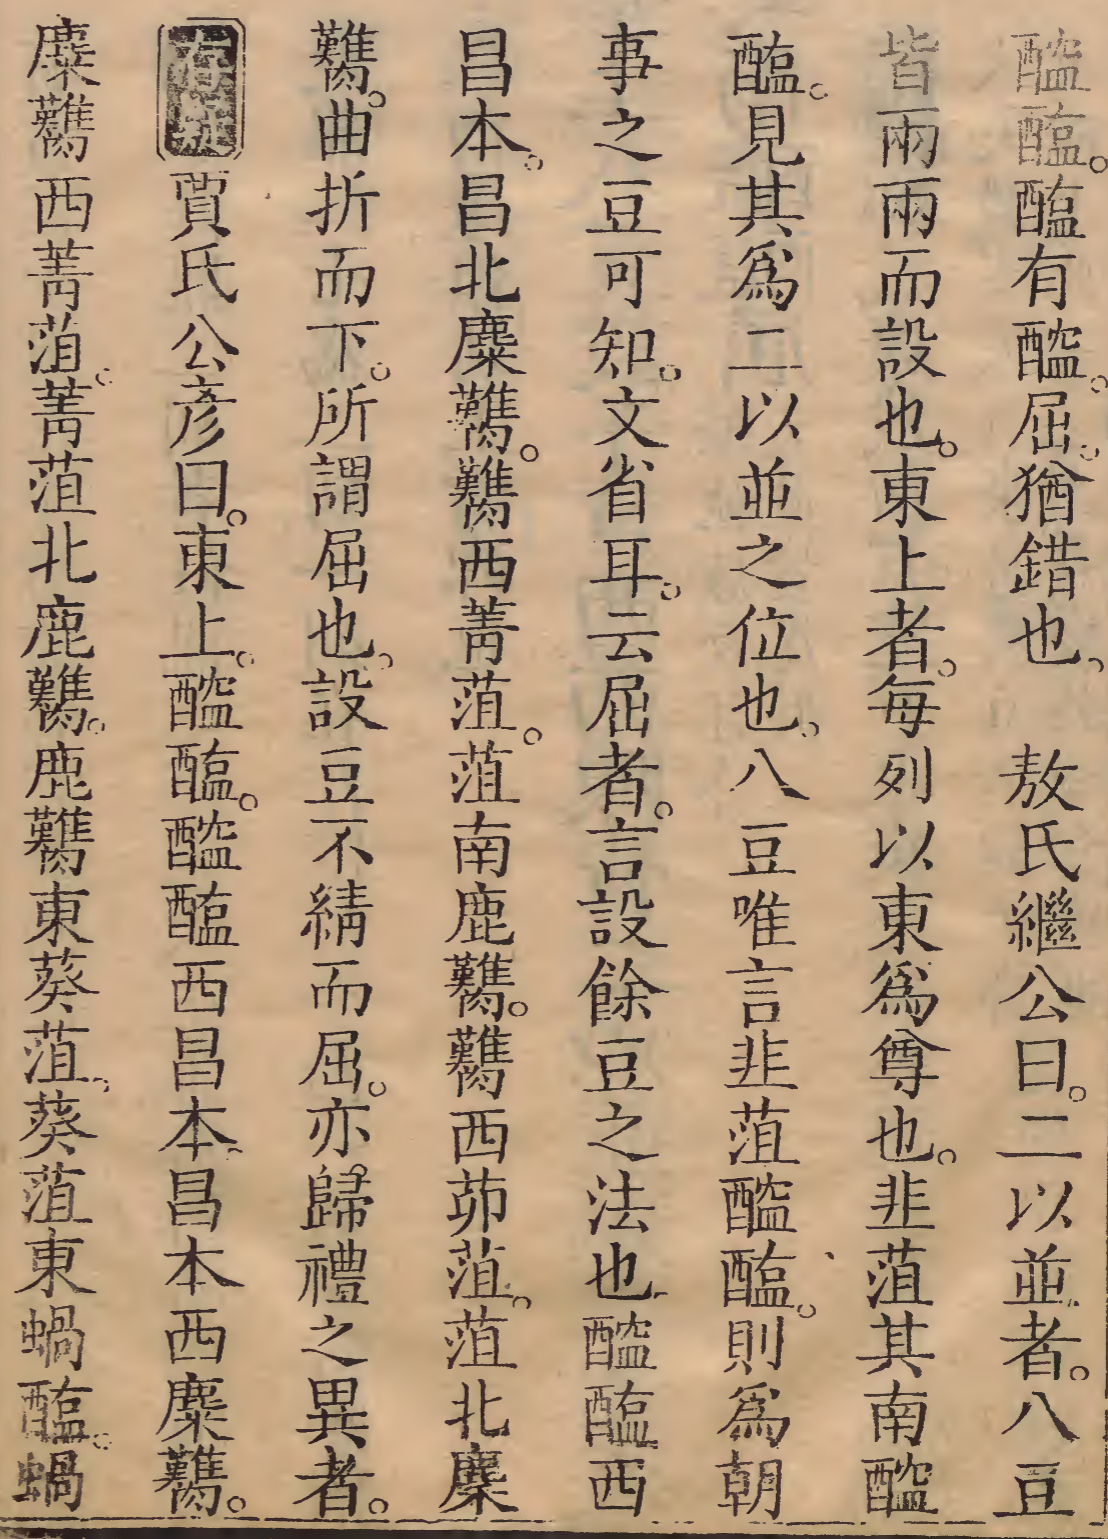 醓醢。醢有醓。屈。猶錯也。　敖氏繼公曰。二以並者。八豆
皆兩兩而設也。東上者。每列以東爲尊也。韭菹其南醓
醢。見其爲二以並之位也。八豆唯言韭菹醓醢。則爲朝
事之豆可知。文省耳。云屈者。言設餘豆之法也。醓醢西
昌本。昌北麋臡。臡西菁菹。菹南鹿臡。臡西茆菹。菹北麋
臡。曲折而下。所謂屈也。設豆不綪而屈。亦歸禮之異者。
存疑 賈氏公彥曰。東上。醓醢。醓醢西昌本。昌本西麋臡。
麋臡西菁菹。菁菹北鹿臡。鹿臡東葵菹。葵菹東蝸醢。蝸